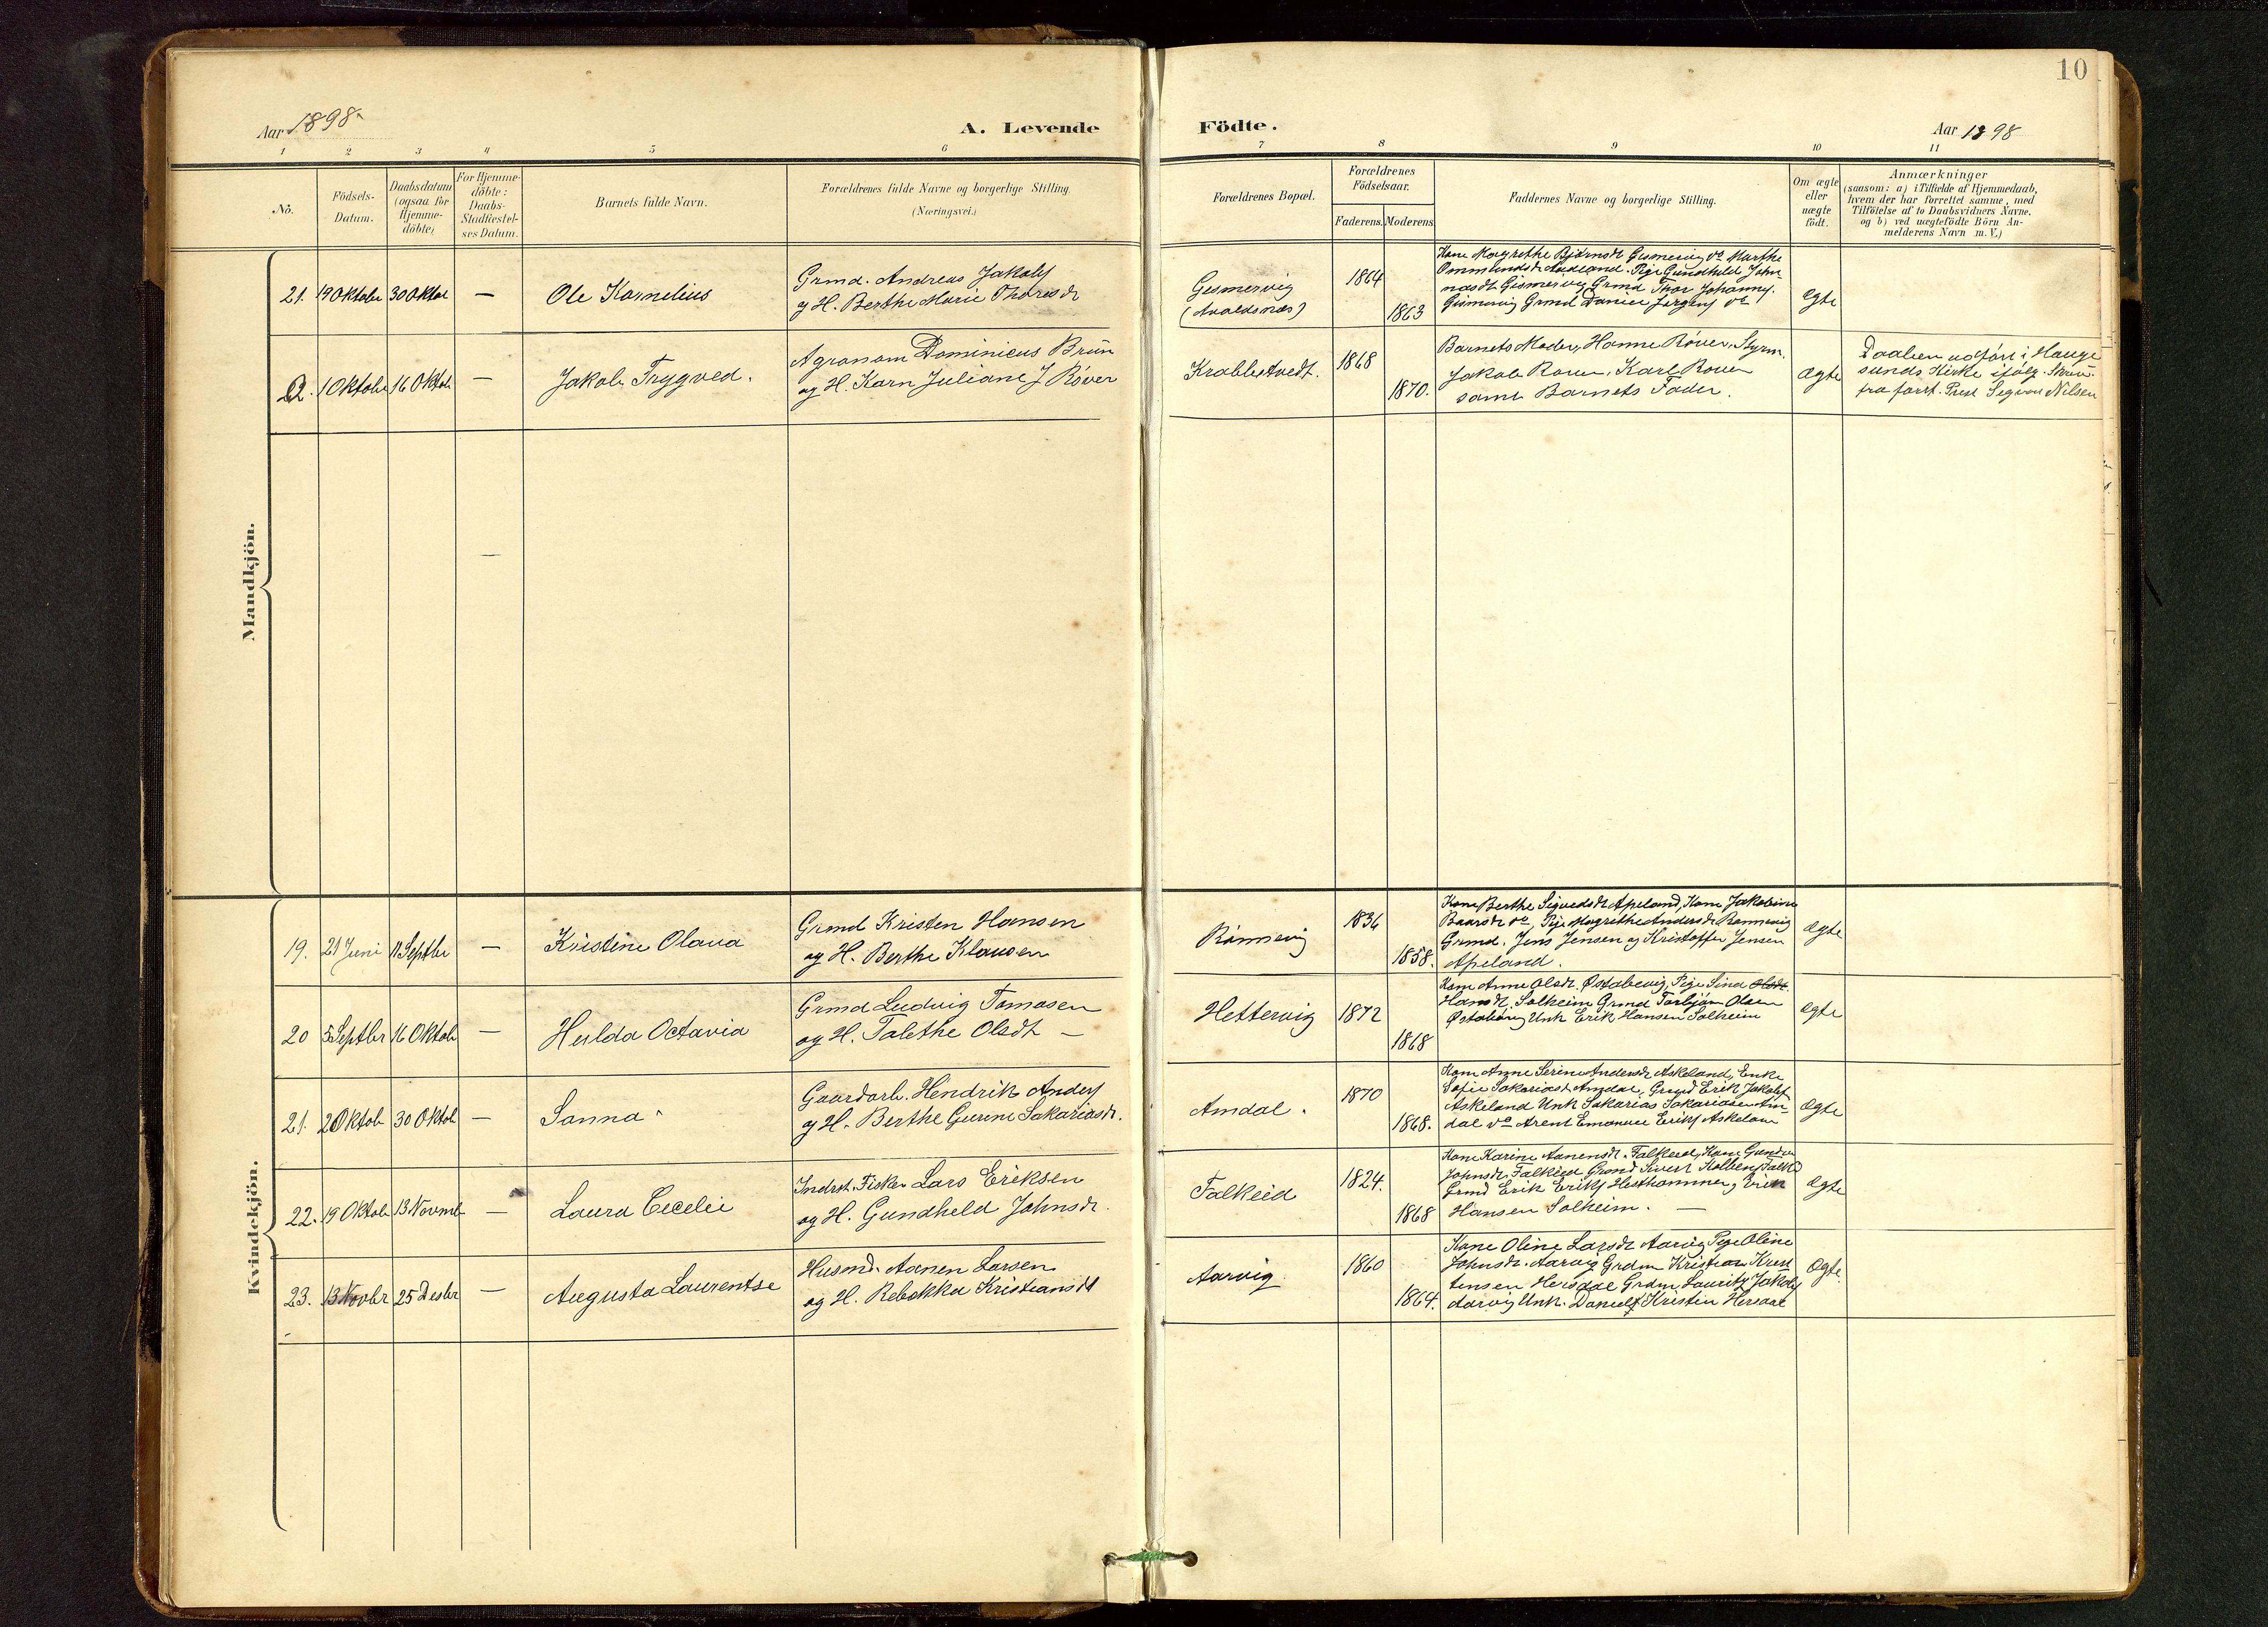 10
Aar 1898
A. Levende
Födte.
Aar 1898
1 2 3 4 5 6 7 8 9 10 11
No.
Födsels-
Datum.
Daabsdatum
(ogsaa for
Hjemme-
döbte)
For Hjemme-
döbte:
Daabs-
Stadfæstel-
ses Datum.
Barnets fulde Navn.
Forældrenes fulde Navne og borgerlige Stilling.
(Næringsvei.)
Forældrenes Bopæl.
Forældrenes
Födselsaar.
Faderens. Moderens
Faddernes Navne og borgerlige Stilling.
Om ægte
eller
uægte
födt.
Anmærkninger
(saasom: a) i Tilfælde af Hjemmedaab,
hvem der har forrettet samme, med
Tilföielse af to Daabsvidners Navne,
og b) ved uægtefödte Börn An-
melderens Navn m. V.)
Mandkjön.
21. 19 Oktober 30 Oktbr — Ole Kornelius
Grmd. Andreas Jakobs
og H. Berthe Marie Thoresdr
Gesmervig
(Avaldsnæs)
1864
1863
Kone Margrethe Bjørnsdr Gismervig Do Marthe
Ommundsdr Aadland. Pige Gundhild John
nasdt Gismervig Grmd Thor Johannes.
Gismervig Grmd Daniel Jørgens Do
Ægte
22. 1 Oktober 16 Oktob — Jakob Trygved.
Agronom Dominicus Brun
og H. Karn Juliane J Røver
Krabbetvedt.
1868
1870.
Barnets Moder, Hanne Røver, Styrm.
Jakob Rover, Karl Rover
samt Barnets Fader.
Ægte
Daaben udført i Hauge
sunds Kirke ifølg. Skriv.
fra forst. Prest Sigvar Nilsen
Kvindekjön.
19. 21 Juni 11 Septbr — Kristine Olava
Grmd Kristen Hansen
og H. Berthe Klausen
Rønnevig
1836
1858.
Kone Berthe Sigvedsdt Apeland, Kone Jakobine
Baarsdt do, Pige Margrethe Andersdt Rønnevig
Grmd. Jens Jensen og Kristoffer Jensen
Apeland.
Ægte
20 5 Septbr 16 Oktob — Hulda Octavia
Grmd Ludvig Tomasen
og H. Talethe Olsdt —
Hettervig
1872
1868
Kone Anne Olsdt. Østabøvig, Pige Sina Olsdt.
Hansdt. Solheim Grmd Torbjørn Olsen
Østabøvig Unk Erik Hansen Solheim
Ægte
21. 2 Oktob 30 Oktob — Sanna
Gaardarb. Hendrik Anders
og H. Berthe Gurine Sakariasdr.
Amdal.
1870
1868.
Kone Anne Serine Andersdt Askeland, Enke
Sofie Sakariasdt Amdal, Grmd Erik Jakobs
Askeland Unk Sakarias Sakariasen Am-
dal og Arent Emanuel Eriks Askeland
Ægte
22. 19 Oktob 13 Novmb — Laura Cecelie
Indrst. Fisker Lars Eriksen
og H. Gundheld Johnsdr.
Falkeid
1824.
1868
Kone Karine Aanensdt. Falkeid, Kone Gundvor
Johnsdt. Falkeid Grmd Sivert Kolbens Falk
Grmd Erik Eriks Hesthammer og Erik
Hansen Solheim. —
Ægte
23. 13 Novbr 25 Desbr — Augusta Laurentse
Husmd. Aanen Larsen
og H. Rebekka Kristiansdt
Aarvig
1860
1864.
Kone Oline Larsdt Aarvig Pige Oline
Johnsdt. Aarvig Grdm Kristian Kris
tensen Hersdal Grdm Lauritz Jakobs
Aarvig Unk. Daniels Kristin Hersdal
Ægte.